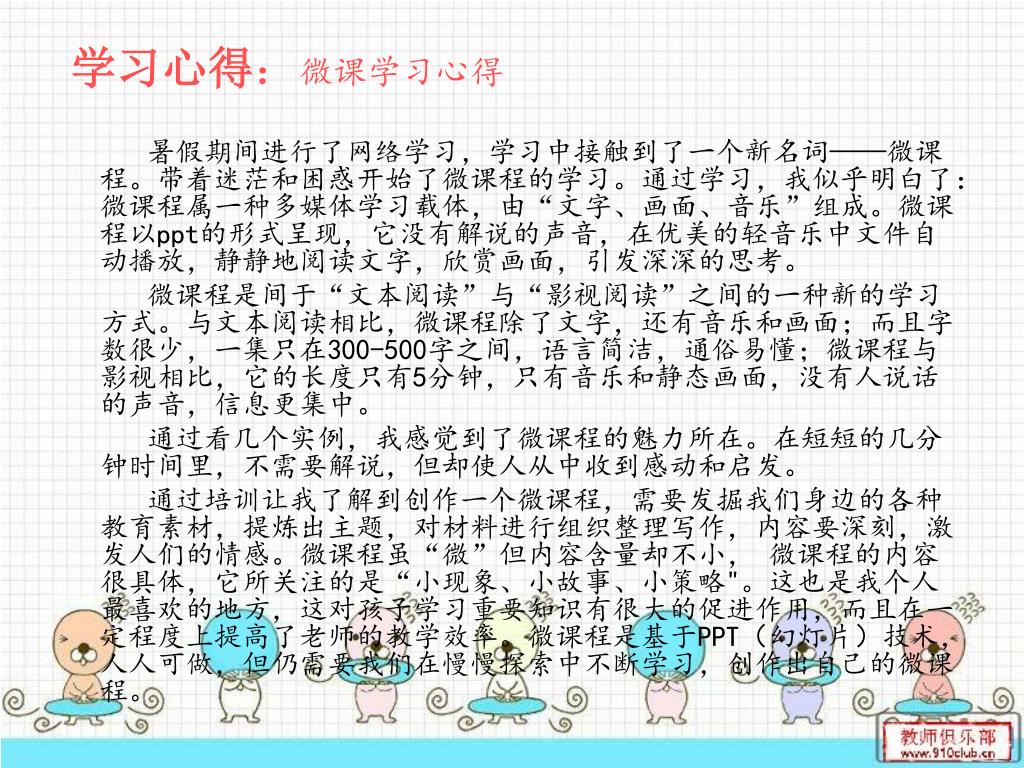 学习心得：微课学习心得
暑假期间进行了网络学习，学习中接触到了一个新名词——微课
程。带着迷茫和困惑开始了微课程的学习。通过学习，我似乎明白了：
微课程属一种多媒体学习载体，由“文字、画面、音乐”组成。微课
程以ppt的形式呈现，它没有解说的声音，在优美的轻音乐中文件自
动播放，静静地阅读文字，欣赏画面，引发深深的思考。
微课程是间于“文本阅读”与“影视阅读”之间的一种新的学习
方式。与文本阅读相比，微课程除了文字，还有音乐和画面；而且字
数很少，一集只在300-500字之间，语言简洁，通俗易懂；微课程与
影视相比，它的长度只有5分钟，只有音乐和静态画面，没有人说话
的声音，信息更集中。
通过看几个实例，我感觉到了微课程的魅力所在。在短短的几分
钟时间里，不需要解说，但却使人从中收到感动和启发。
通过培训让我了解到创作一个微课程，需要发掘我们身边的各种
教育素材，提炼出主题，对材料进行组织整理写作，内容要深刻，激
发人们的情感。微课程虽“微”但内容含量却不小， 微课程的内容
很具体，它所关注的是“小现象、小故事、小策略"。这也是我个人
最喜欢的地方，这对孩子学习重要知识有很大的促进作用，而且在一
定程度上提高了老师的教学效率。微课程是基于PPT（幻灯片）技术，
人人可做，但仍需要我们在慢慢探索中不断学习，创作出自己的微课
程。
教师俱乐部
www.910club.cn